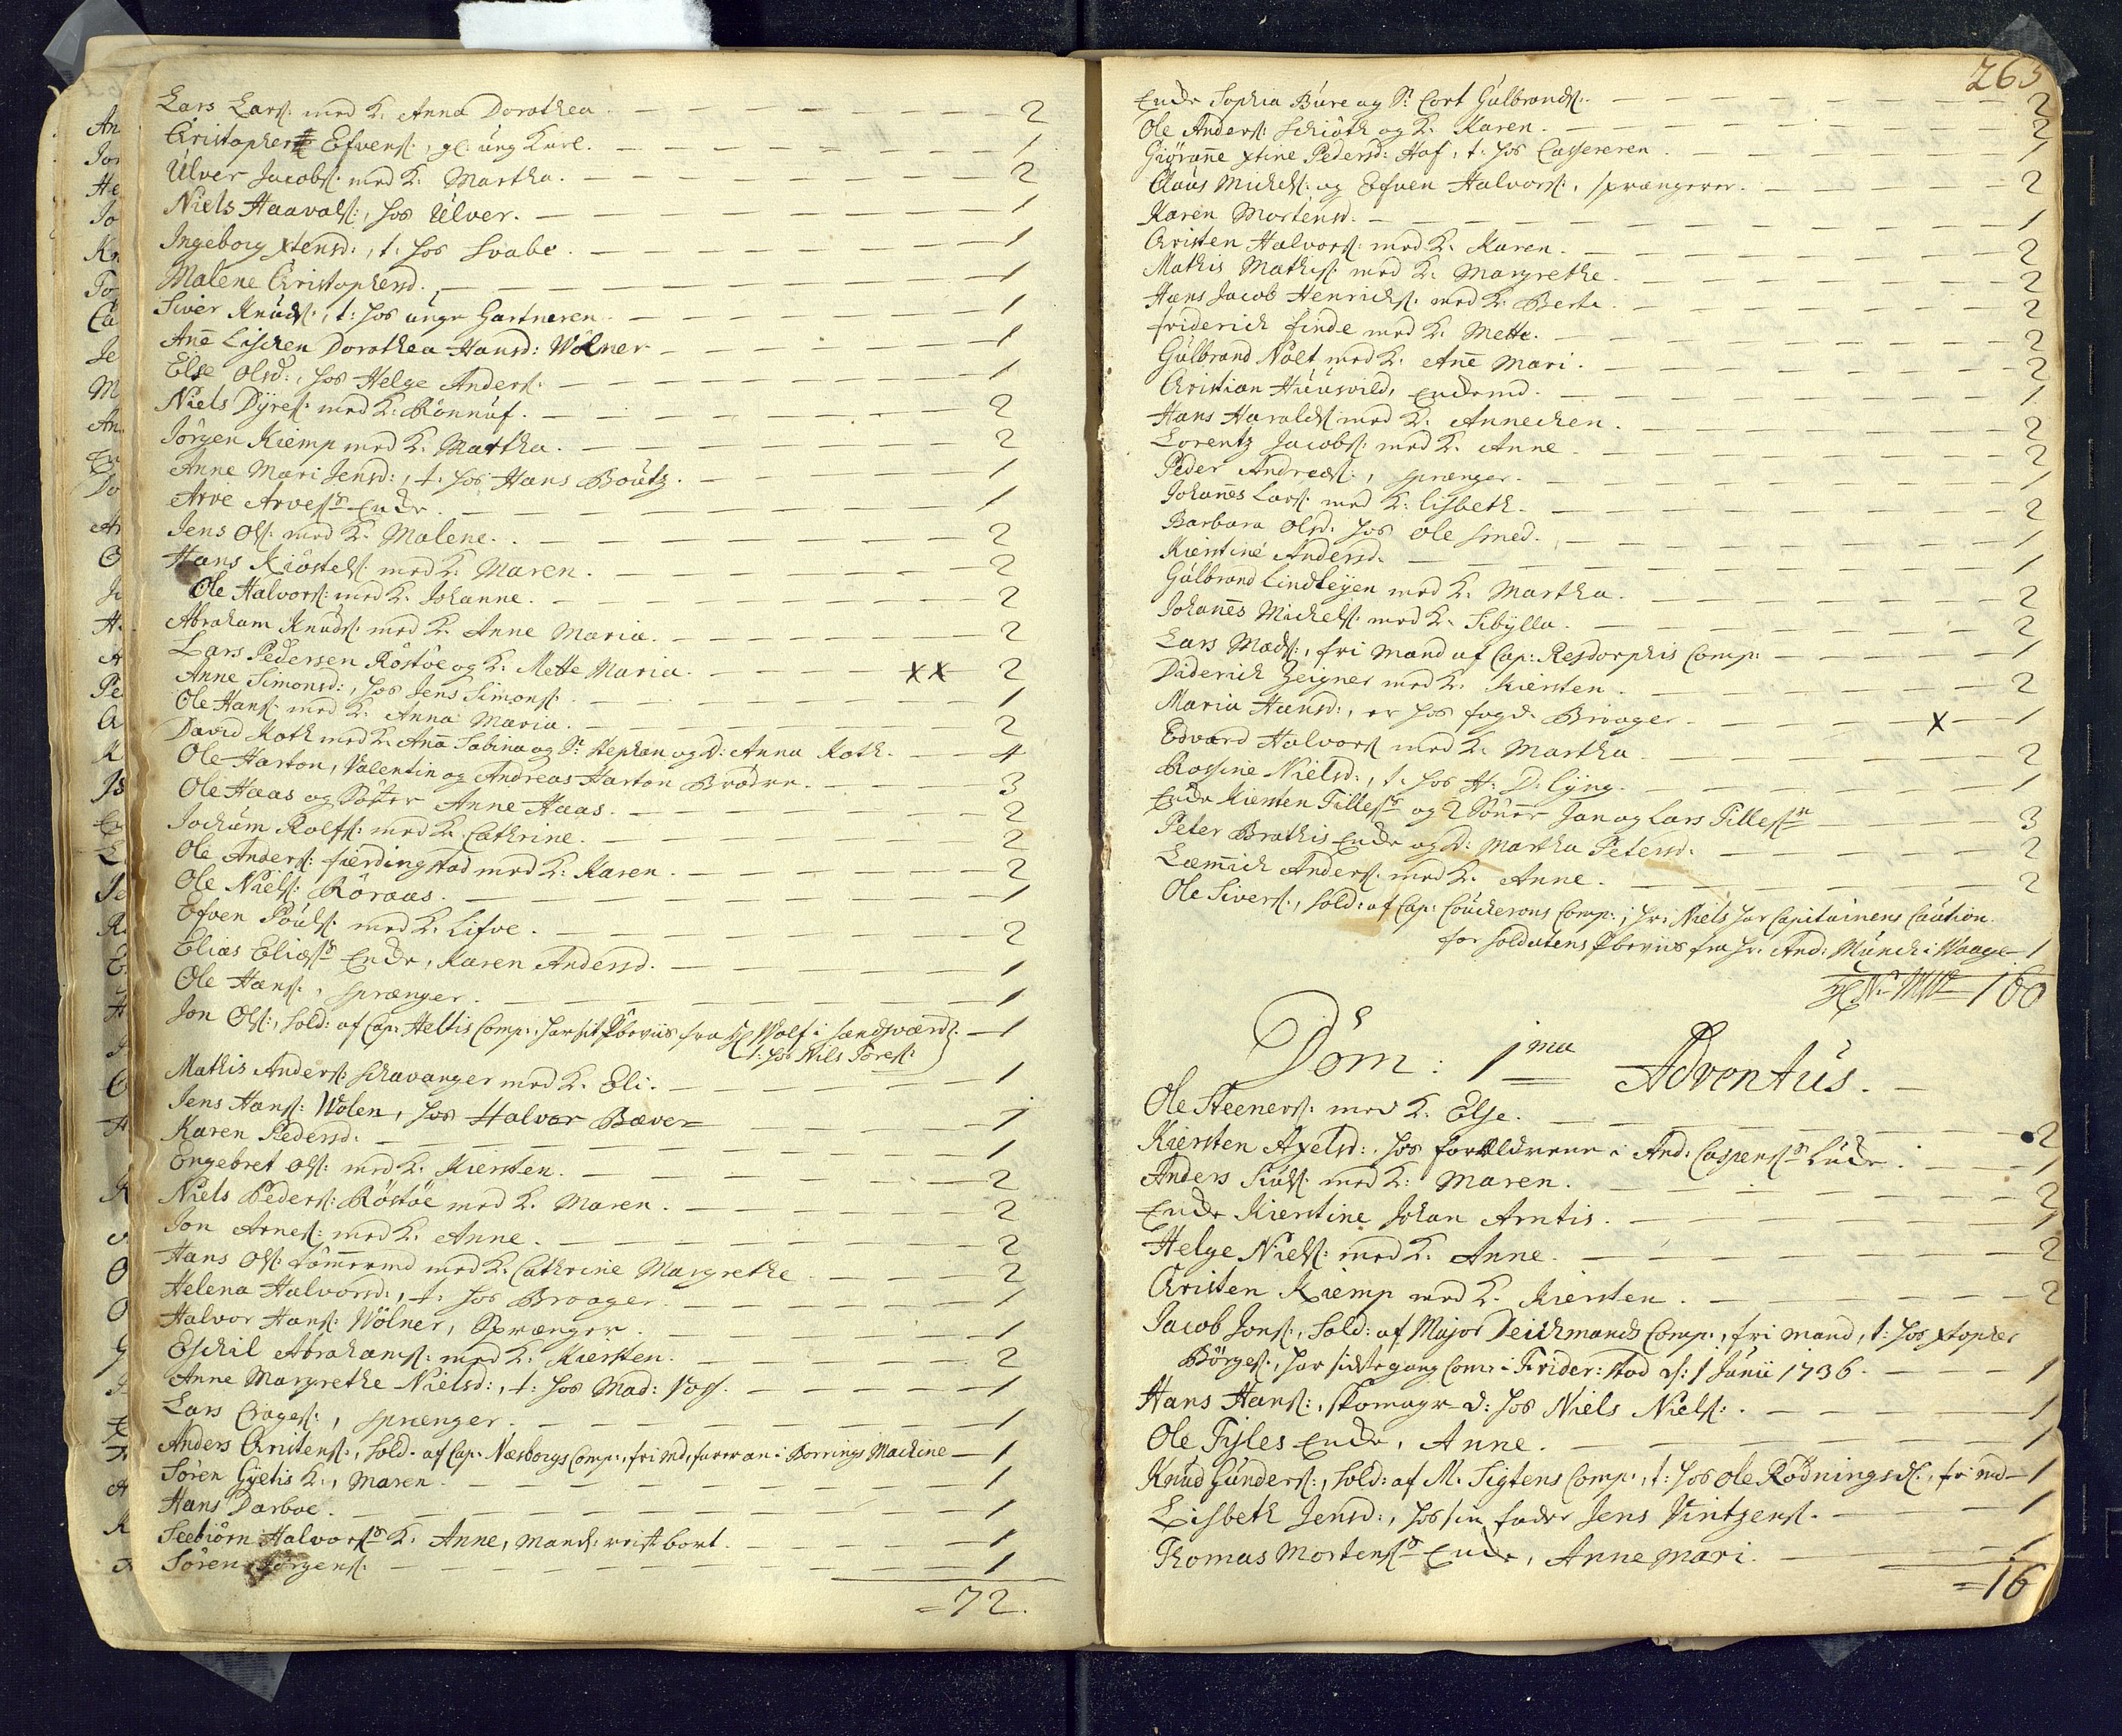 Lars Lars: med K. Anna Dorothea. — 2
Christopher Efvens:, gl: ung Karl. — 1
Ulver Jacobs: med K. Martha. — 2
Niels Haavols:, hos Ulver. — 1
Ingeborg xtensd:, t: hos Svabe. — 1
Malene Christophersd. — 1
Siver Knuds:, t: hos unge Gartneren. — 1
Añe Lischen Dorothea Hansd: Wölner — 1
Else Olsd:, hos Helge Anders: — 1
Niels Dÿres: med K: Rönnuf. — 2
Jörgen Kiemp med K. Martha. — 2
Anne Mari Jensd:, t: hos Hans Boutz. — 1
Arve Arves:s Encke. — 1
Jens Ols: med K. Malene. — 2
Hans Kiöstels: med K. Maren. — 2
Ole Halvors: med K. Johanne. — 2
Abraham Knuds: med K. Anne Maria. — 2
Lars Pedersen Röstöe og K. Mette Maria. — xx 2
Anne Simonsd:, hos Jens Simons: — 1
Ole Hans: med K. Anna Maria. — 2
David Roth med K. Aña Sabina og S: Stephan og D: Anna Roth. — 4
Ole Harton, Valentin og Andreas Harton Brødre. — 3
Ole Haas og Søster Anne Haas. — 2
Jochum Rolfs: med K. Cathrine. — 2
Ole Anders: fierdingstad med K: Karen. — 2
Ole Niels: Röraas. — 1
Efven Pouls: med K. Lifve. — 2
Elias Elias:s Encke, Karen Andersd. — 1
Ole Hans:, sprænger. — 1
Jon Ols:, Sold: af Cap: Heltis Comp:, har sit Pbeviis fra H Wolf i Sandsværd. — 1
t: hos Nils Tores:
Mathis Anders: Schavanger med K. Eli. — 1
Jens Hans: Wolen, hos Halvor Bæver — 1
Karen Pedersd. — 1
Engebret Ols: med K. Kiersten. — 2
Niels Peders: Röstöe med K. Maren. — 2
Jon Arnes: med K. Anne. — 2
Hans Ols: Tömermd med K. Cathrine Margrethe — 2
Helena Halvorsd:, t: hos Broager. — 1
Halvor Hans: Wölner, Sprænger. — 1
Eschil Abrahams: med K. Kiersten. — 2
Anne Margrethe Nielsd:, t: hos Mad: Foss. — 1
Lars Crages:, sprænger. — 1
Anders Christens:, Sold: af Cap: Næsborgs Comp:, fri md, farer an i Borrings Machine — 1
Sören Gÿetis K., Maren. — 1
Hans Darboe. — 1
Seebiörn Halvors:s K. Anne, Mand: reist bort. — 1
Sören Jörgens: — 1
=72.
265
Encke Sophia Bure og S: Cort Gulbrands: — 2
Ole Anders: Schiöth og K. Karen. — 2
Giörañe xtine Pedersd: Hof, t: hos Cassereren. — 1
Claus Michels: og Efven Halvors:, sprængerer. — 2
Karen Mortensd. — 1
Christen Halvors: med K. Karen. — 2
Mathis Mathis: med K. Margrethe. — 2
Hans Jacob Henrichs: med K. Berte. — 2
Friderich Finde med K. Mette. — 2
Gulbrand Nolt med K. Añe Mari. — 2
Christian Huuswild, Enckemd. — 1
Hans Haralds: med K. Annechen. — 2
Lorentz Jacobs: med K. Anne. — 2
Peder Andreæs:, sprænger. — 1
Johañes Lars: med K. Lisbeth. — 2
Barbara Olsd: hos Ole Smed. — 1
Kierstine Andersd. — 1
Gulbrand Lindleÿen med K. Martha. — 2
Johañes Michels: med K. Sibÿlla. — 2
Lars Mads:, fri Mand af Cap: Resdorphis Comp: — 1
Diderich Zeigner med K. Kiersten. — 2
Maria Hansd:, er hos fogd. Broager. — x 1
Edvard Halvors: med K. Martha. — 2
Rossine Nielsd:, t: hos H: D: Lÿng. — 1
Encke Kiersten Tilles:s og 2 Söner Jan og Lars Tilles:n — 3
Peter Brathis Encke og D: Martha Petersd. — 2
Læmich Anders: med K. Anne. — 2
Ole Sivers:, Sold: af Cap: Couckerons Comp:; Hr: Niels har Capitainens Caution
for Soldatens Pbeviis fra Hr. And: Munch i Waage — 1
160
Dom: 1ma Adventus.
Ole Steeners: med K. Else. — 2
Kiersten Axelsd:, hos forældrene i And: Caspers:s Lucke. — 1
Anders Siuls: med K: Maren. — 2
Encke Kierstine Johan Arntis. — 1
Helge Niels: med K. Anne. — 2
Christen Kiemp med K. Kiersten. — 2
Jacob Jons:, Sold: af Major Deichmands Comp:, fri mand, t: hos xtopher
Börges:, har sidste gang Com: i Frider:stad d: 1 Junii 1736. — 1
Hans Hans:, skomager d: hos Niels Niels:. — 1
Ole Tÿles Encke, Anne. — 1
Knud Gunders:, Sold: af M: Sigtens Comp:, t: hos Ole Rödningsd:, fri md — 1
Lisbeth Jensd:, hos sin fader Jens Vintzens: — 1
Thomas Mortens:s Encke, Anne Mari. — 1
=16